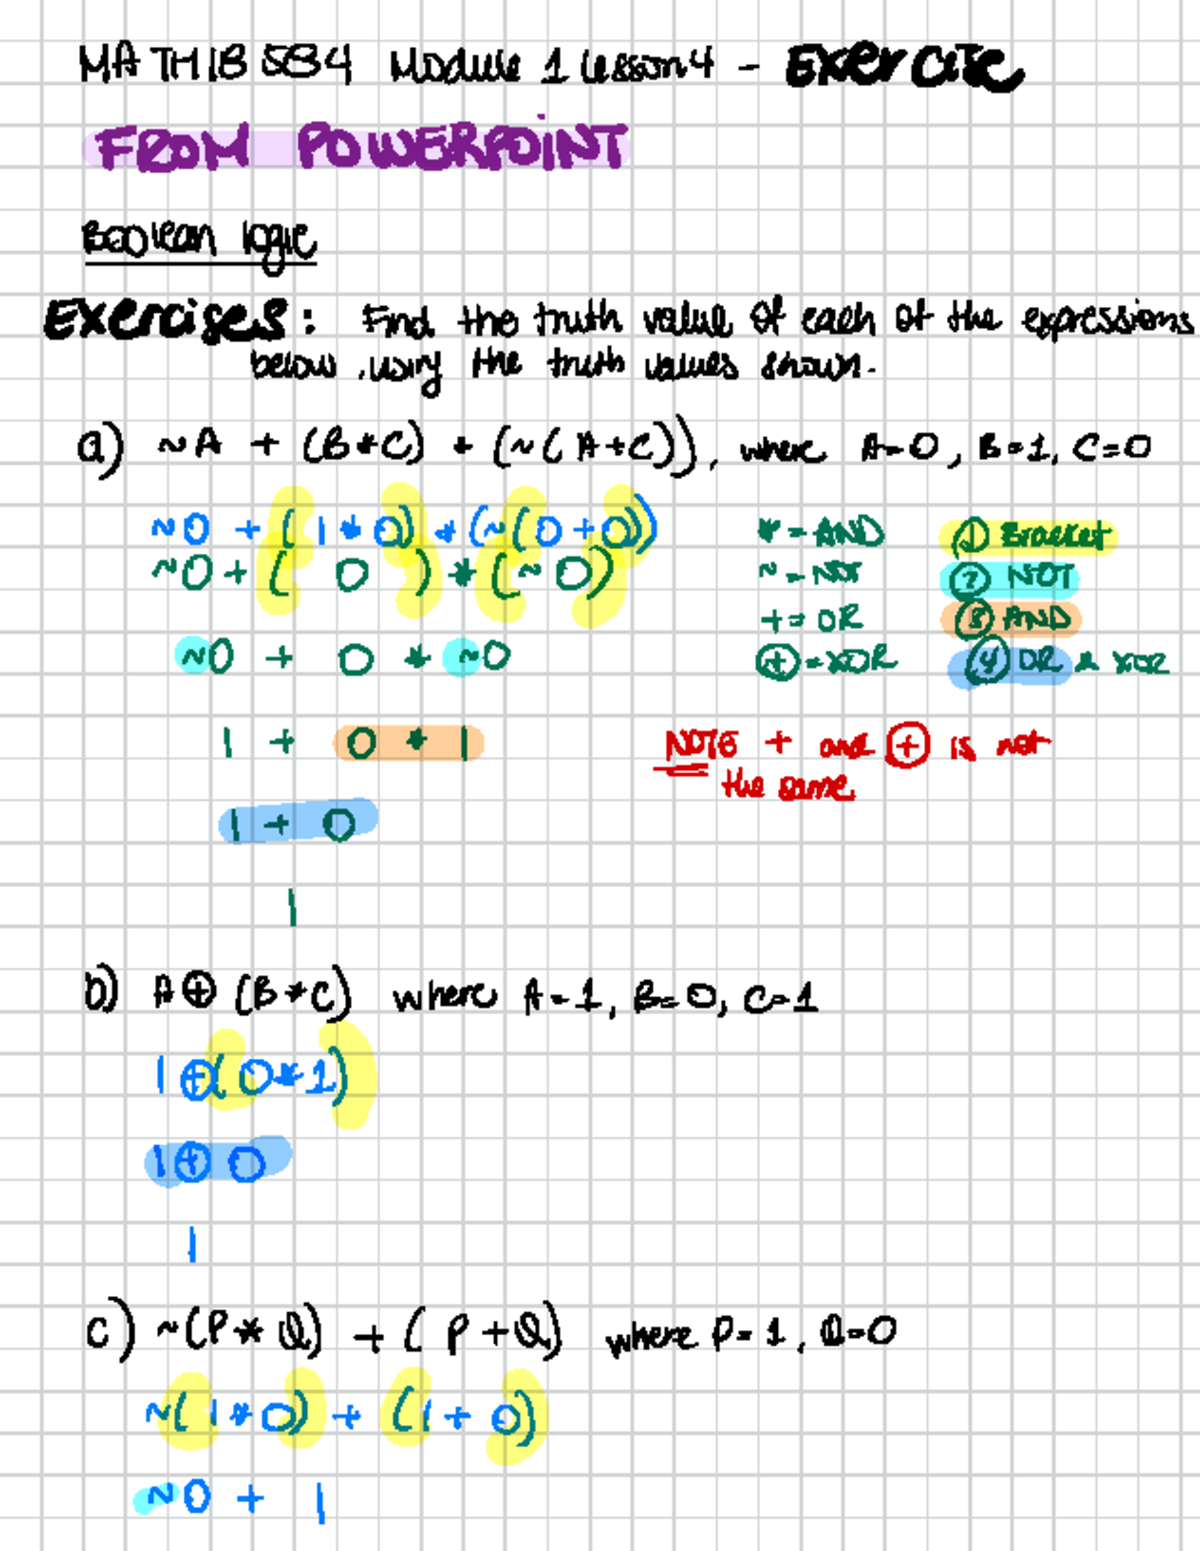 MATH18584 Module 1 Lesson 4 - Exercise
FROM POWERPOINT
Boolean logic
Exercises: Find the truth value of each of the expressions
below, using the truth values shown.
a) ~A + (B*C) * (~(A+C)), where A=0, B=1, C=0
~0 + (1*0) * (~(0+0))
~0+ ( 0 ) * (~0)
~0 + 0 * ~0
1 + 0 * 1
1 + 0
1
* = AND ① Bracket
~ = NOT ② NOT
+ = OR ③ AND
⊕ = XOR ④ OR & XOR
NOTE + and ⊕ is not
the same
b) A⊕(B*C) where A=1, B=0, C=1
1⊕(0*1)
1⊕0
1
c) ~(P*Q) + (P+Q) where P=1, Q=0
~(1*0) + (1+0)
~0 + 1